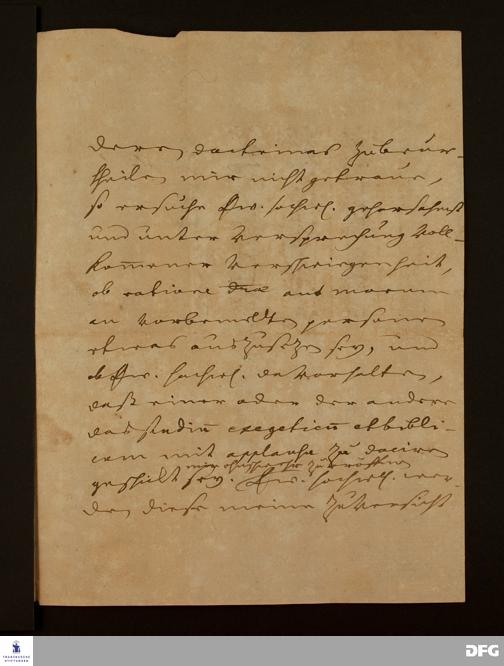 deren doctrinas zubeur-
theilen mir nicht getraue,
so ersuche Ew. hochw. gehorsamst
und unter Versprechung Voll-
kommener Verschwiegenheit,
ob ratione aut morum
an Vorbemeldten personen
etwas auszusetzen sey, und
ob Ew. hochw. davorhalten,
daß einer oder der andere
das studiū exegeticū et bibli-
cum mit applausu zu dociren
mir zu eröffnen
geschikt sey. Ew. hochw. wer-
den diese meine Zuversicht
FRANCKESCHE
STIFTUNGEN
DFG